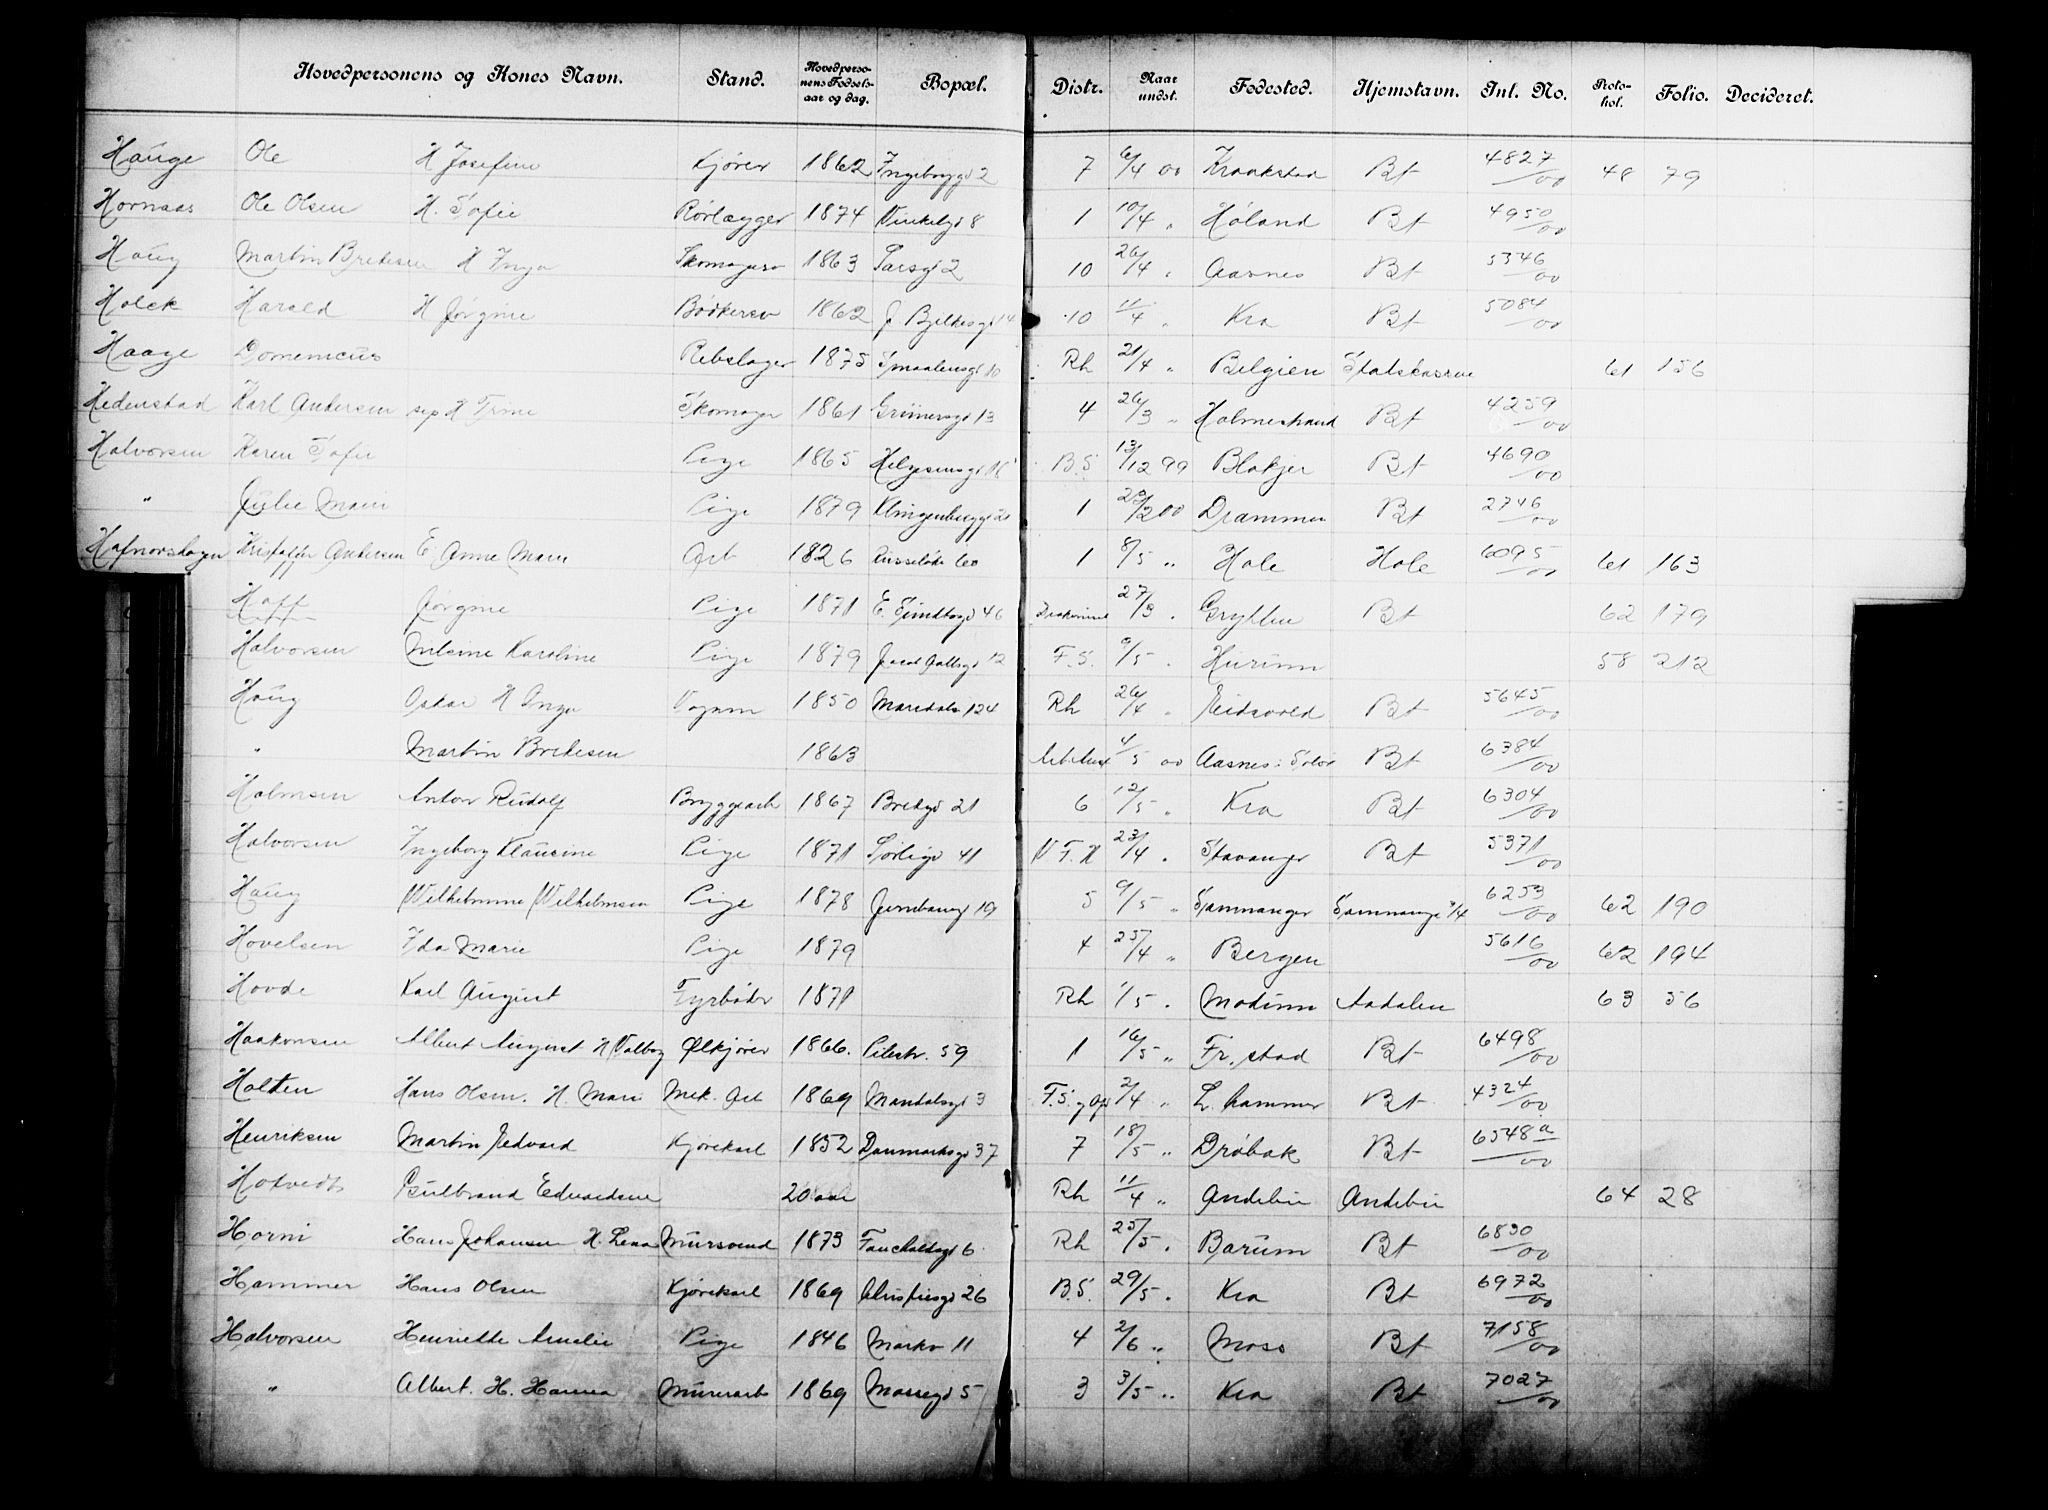 Hovedpersonens og Kones Navn. Stand. Hovedperso-nens Fødsels-aar og dag. Bopæl. Distr. Naar undst. Fødested. Hjemstavn. Int. No. Proto-kol. Folio. Decideret.
Hauge Ole H Josefine Kjører 1862 Ingeborggt 2 7 6/4 00 Kraakstad Bt 4827/00 48 79
Hornaas Ole Olsen H. Sofie Rørlægger 1874 Vinkelgt 8 1 10/4 " Høland Bt 4950/00
Haug Martin Bredesen H Inga Skomagersv 1863 Parsgt 2 10 26/4 " Aasnes Bt 5346/00
Holck Harald H Jørgine Bødkersv 1862 J Bjelkesgt 14 10 11/4 " Kra Bt 5084/00
Haage Domenicus Rebslager 1875 Smaalensgt 10 Rh 21/4 " Belgien Statskasse 61 156
Hedenstad Karl Andersen sep H Trine Skomager 1861 Grünersgt 13 4 26/3 " Holmestrand Bt 4259/00
Halvorsen Karen Sofie Pige 1865 Helgesensgt 18 B.S. 13/12 99 Blakjer Bt 4690/00
" Julie Marie Pige 1879 Klingenberggt 1 2/00 Drammen Bt 2746/00
Kristoffer Andersen E. Anne Marie Arb 1826 60 1 8/5 " Hole Hole 6095/00 61 163
Hoff Jørgine Pige 1871 E. Sundtsgt 46 27/3 " Grytten Bt 62 179
Halvorsen Nilsine Karoline Pige 1879 Jacob Aallsgt 12 F.S. 9/5 " Hurum 58 212
Haug Oskar H Inga Vognm 1850 Maridals 124 Rh 26/4 " Eidsvold Bt 5645/00
" Martin Bredesen 1863 4/5 00 Aasnes i Solør Bt 6384/00
Holmsen Anton Rudolf Bryggearb 1867 Bredgt 21 6 12/5 " Kra Bt 6304/00
Halvorsen Ingeborg Klausine Pige 1871 Sørligt 41 V F. H 23/4 " Stavanger Bt 5371/00
Haug Wilhelmine Wilhelmsen Pige 1878 Jernbanegt 19 5 9/5 " Samnanger Samnanger 3/4 6253/00 62 190
Hovelsen Ida Marie Pige 1879 4 25/4 " Bergen 5616/00 62 194
Hovde Karl August Fyrbøder 1871 Rh 1/5 " Modum Aadalen 63 56
Haakonsen Albert August H Valborg Ølkjører 1866. Pilestr. 59 1 16/5 " Fr. stad Bt 6498/00
Holten Hans Olsen. H. Marie Mek. Arb 1869 Mandalsgt 3 F.S. 2/4 " L. hammer Bt 4324/00
Henriksen Martin Edvard Kjørekarl 1852 Danmarksgt 37 7 18/5 " Drøbak Bt 6548 a/00
Hotvedt Gulbrand Edvardsen 20 aar Rh 11/4 " Andebu Andebu 64 28
Horni Hans Johansen H. Lena Mursvend 1873 Fauchaldsgt 6 Rh 25/5 " Bærum Bt 6830/00
Hammer Hans Olsen Kjørekarl 1869 Christiesgt 26 B.S. 29/5 " Kra Bt 6972/00
Halvorsen Henriette Amalie Pige 1846 Markv 11 4 2/6 " Moss Bt 7158/00
" Albert. H. Hanna Murerarb 1869 Mossegt 5 3 3/5 " Kra Bt 7027/00